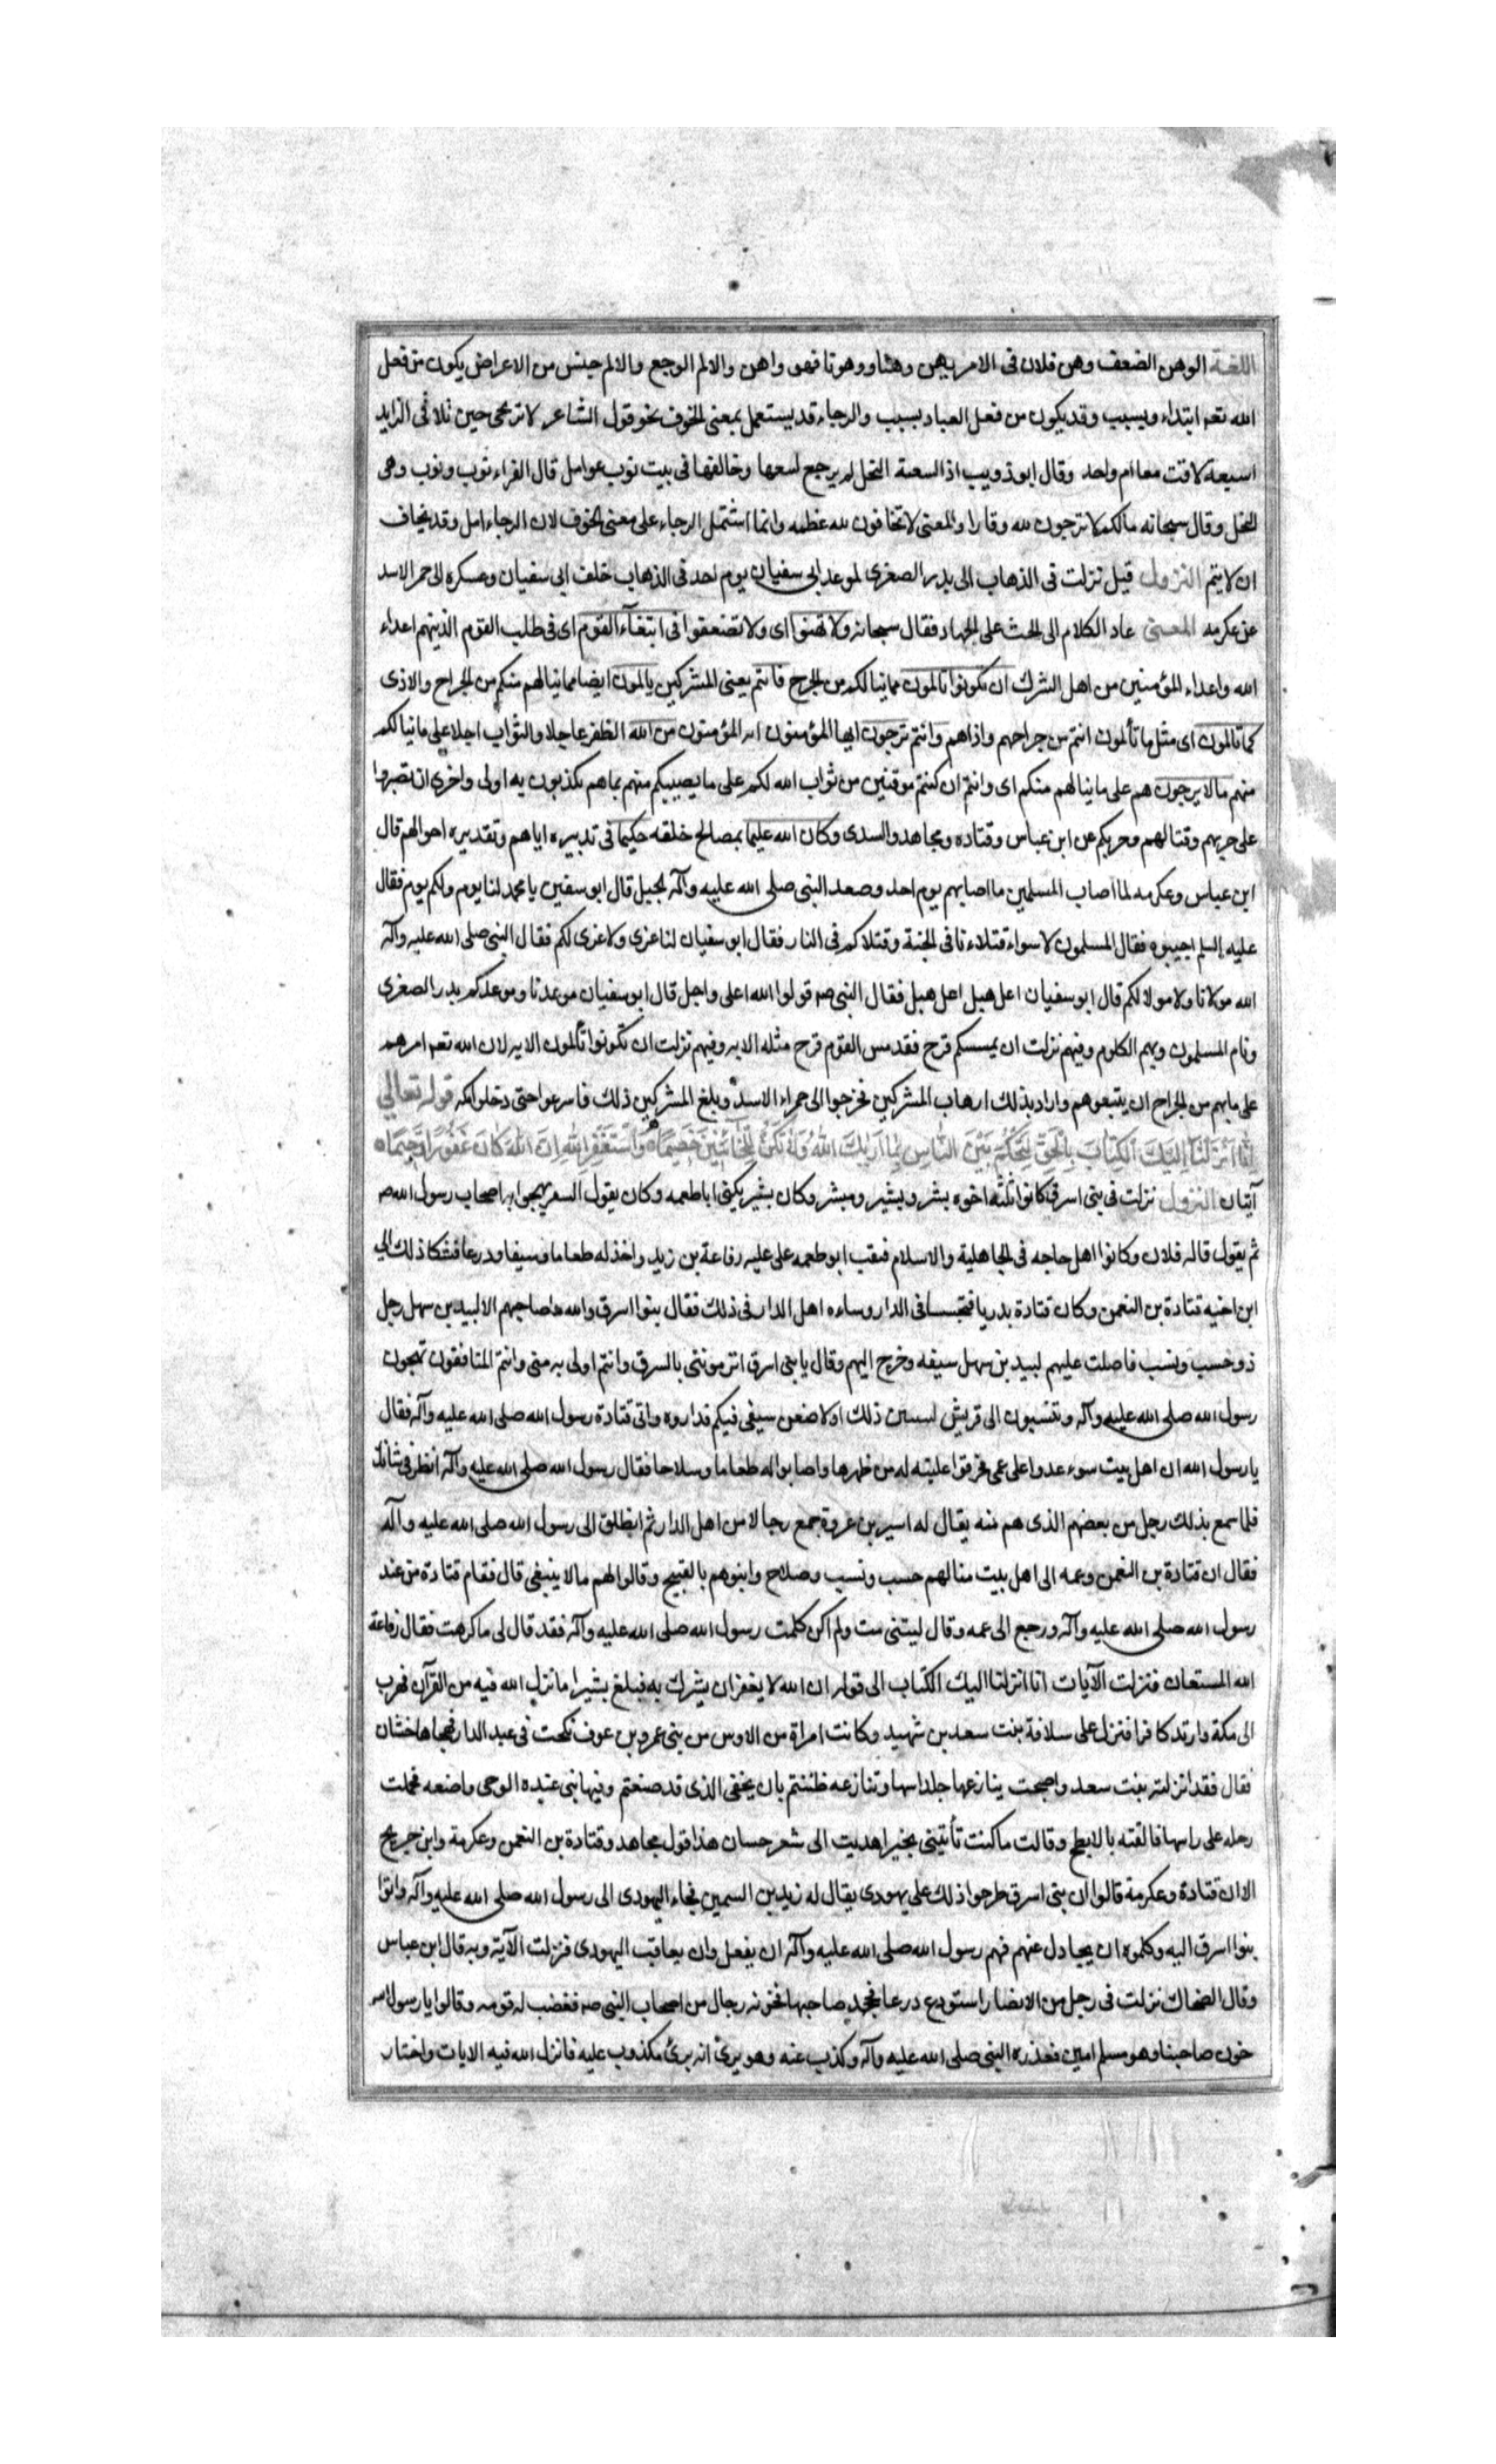 اللغة الوهن الضعف وهن فلان فى الامر يهن وهنا ووهونا فهو واهن والالم الوجع والالم جنس من الاعراض يكون من فعل
الله تعم ابتداء وبسبب وقد يكون من فعل العباد بسبب والرجاء قد يستعمل بمعنى الخوف نحو قول الشاعر لا ترتجى حين تلاقى الزايد
اسبعة لاقت معا ام واحد وقال ابو ذويب اذا لسعته النحل لم يرجع لسعها وخالفها فى بيت نوب عوامل قال الفراء نوب ونوب وهى
النحل وقال سبحانه مالكم لا ترجون لله وقارا والمعنى لا تخافون لله عظمه وانما اشتمل الرجاء على معنى الخوف لان الرجاء امل وقد يخاف
ان لا يتم النزول قيل نزلت فى الذهاب الى بدر الصغرى لموعد ابى سفيان يوم احد فى الذهاب خلف ابى سفيان وعسكره الى حمر الاسد
عن عكرمه المعنى عاد الكلام الى الحث على الجهاد فقال سبحانه ولا تهنوا اى ولا تضعفوا فى ابتغآء القوم اى فى طلب القوم الذينهم اعداء
الله واعداء المؤمنين من اهل الشرك ان تكونوا تالمون مما ينالكم من الجرح فانتم يعنى المشركين يالمون ايضا مما ينالهم منكم من الجراح والاذى
كما تالمون اى مثل ما تألمون انتم من جراحهم واذاهم وانتم ترجون ايها المؤمنون المؤمنون من الله الظفر عاجلا والثواب اجلا على ما ينالكم
منهم مالا يرجون هم على ما ينالهم منكم اى وانتم ان كنتم موقنين من ثواب الله لكم على ما يصيبكم منهم بما هم مكذبون به اولى واحرى ان تصبروا
على حربهم وقتالهم وحربكم عن ابن عباس وقتاده ومجاهد والسدى وكان الله عليما بمصالح خلقه حكيما فى تدبيره اياهم وتقديره احوالهم قال
ابن عباس وعكرمه لما اصاب المسلمين ما اصابهم يوم احد وصعد النبى صلى الله عليه وآله الجبل قال ابو سفين يا محمد لنا يوم ولكم يوم فقال
عليه السلم اجيبوه فقال المسلمون لا سواء قتلاءنا فى الجنة وقتلاكم فى النار فقال ابو سفيان لنا عزى ولا عزى لكم فقال النبى صلى الله عليه وآله
الله مولانا ولا مولا لكم قال ابو سفيان اعل هبل اعل هبل فقال النبى صه قولوا الله اعلى واجل قال ابو سفيان موعدنا وموعدكم بدر الصغرى
ونام المسلمون وبهم الكلوم وفيهم نزلت ان يمسسكم قرح فقد مس القوم قرح مثله الايه وفيهم نزلت ان تكونوا تألمون الايه لان الله تعم امرهم
على مابهم من الجراح ان يتبعوهم واراد بذلك ارهاب المشركين فخرجوا الى حمراء الاسد وبلغ المشركين ذلك فاسرعوا حتى دخلوا مكه قوله تعالى
اِنَّا اَنْزَلْنَآ اِلَيْكَ الْكِتَابَ بِالْحَقِّ لِتَحْكُمَ بَيْنَ النَّاسِ بِمَآ اَرَيٰكَ اللهُ وَلَا تَكُنْ لِلْخَآئِنِينَ خَصِيمًا وَاسْتَغْفِرِ اللهَ اِنَّ اللهَ كَانَ غَفُورًا رَحِيمًا
آيتان النزول نزلت فى بنى اسرق كانوا ثلثه اخوه بشر وبشير ومبشر وكان بشير يكنى ابا طعمه وكان يقول الشعر يهجوا به اصحاب رسول الله صه
ثم يقول قاله فلان وكانوا اهل حاجه فى الجاهلية والاسلام فنقب ابو طعمه على عليه رفاعة بن زيد واخذ له طعاما وسيفا ودرعا فشكا ذلك الى
ابن اخيه قتادة بن النعمن وكان قتادة بدريا فتجسسا فى الدار وساءه اهل الدار فى ذلك فقال بنوا اسرق والله ما صاحبهم الا لبيد بن سهل رجل
ذو حسب ونسب فاصلت عليهم لبيد بن سهل سيفه وخرج اليهم وقال يا بنى اسرق اترمونى بالسرق وانتم اولى به منى وانتم المنافقون تهجون
رسول الله صلى الله عليه وآله وتنسبون الى قريش لتبينن ذلك او لا ضعن سيفى فيكم فداروه واتى قتادة رسول الله صلى الله عليه وآله فقال
يا رسول الله ان اهل بيت سوء عدوا على عمى فخرقوا علية له من ظهرها واصابوا له طعاما وسلاحا فقال رسول الله صلى الله عليه وآله انظر فى شانك
فلما سمع بذلك رجل من بعضهم الذى هم منه يقال له اسير بن عروة جمع رجالا من اهل الدار ثم انطلق الى رسول الله صلى الله عليه وآله
فقال ان قتادة بن النعمن وعمه الى اهل بيت منا لهم حسب ونسب وصلاح وابنوهم بالقبيح وقالوا لهم مالا ينبغى قال فقام قتادة من عند
رسول الله صلى الله عليه وآله ورجع الى عمه وقال ليتنى مت ولم اكن كلمت رسول الله صلى الله عليه وآله فقد قال لى ما كرهت فقال رفاعة
الله المستعان فنزلت الآيات انا انزلنا اليك الكتاب الى قوله ان الله لا يغفر ان يشرك به فبلغ بشيرا ما نزل الله فيه من القرآن فهرب
الى مكة وارتد كافرا فنزل على سلافة بنت سعد بن شهيد وكانت امراة من الاوس من بنى عمرو بن عوف نكحت فى عبد الدار فهجاها حسان
فقال فقد انزلته بنت سعد واصبحت ينازعها جلد استها وتنازعه ظننتم بان يخفى الذى قد صنعتم وفينا نبى عنده الوحى واضعه فحملت
رحله على راسها فالقته بالابطح وقالت ما كنت تأتينى بخير اهديت الى شعر حسان هذا قول مجاهد وقتادة بن النعمن وعكرمة وابن جريح
الا ان قتادة وعكرمة قالوا ان بنى اسرق طرحوا ذلك على يهودى يقال له زيد بن السمين فجاء اليهودى الى رسول الله صلى الله عليه وآله واتوا
بنوا اسرق اليه وكلموه ان يجادل عنهم فهم رسول الله صلى الله عليه وآله ان يفعل وان يعاقب اليهودى فنزلت الآية وبه قال ابن عباس
وقال الضحاك نزلت فى رجل من الانصار استودع درعا فجحد صاحبها فخونه رجال من اصحاب النبى صه فغضب له قومه وقالوا يا رسول الله
خون صاحبنا وهو مسلم امين فعذره النبى صلى الله عليه وآله وكذب عنه وهو يرى انه برئ مكذوب عليه فانزل الله فيه الايات واختار